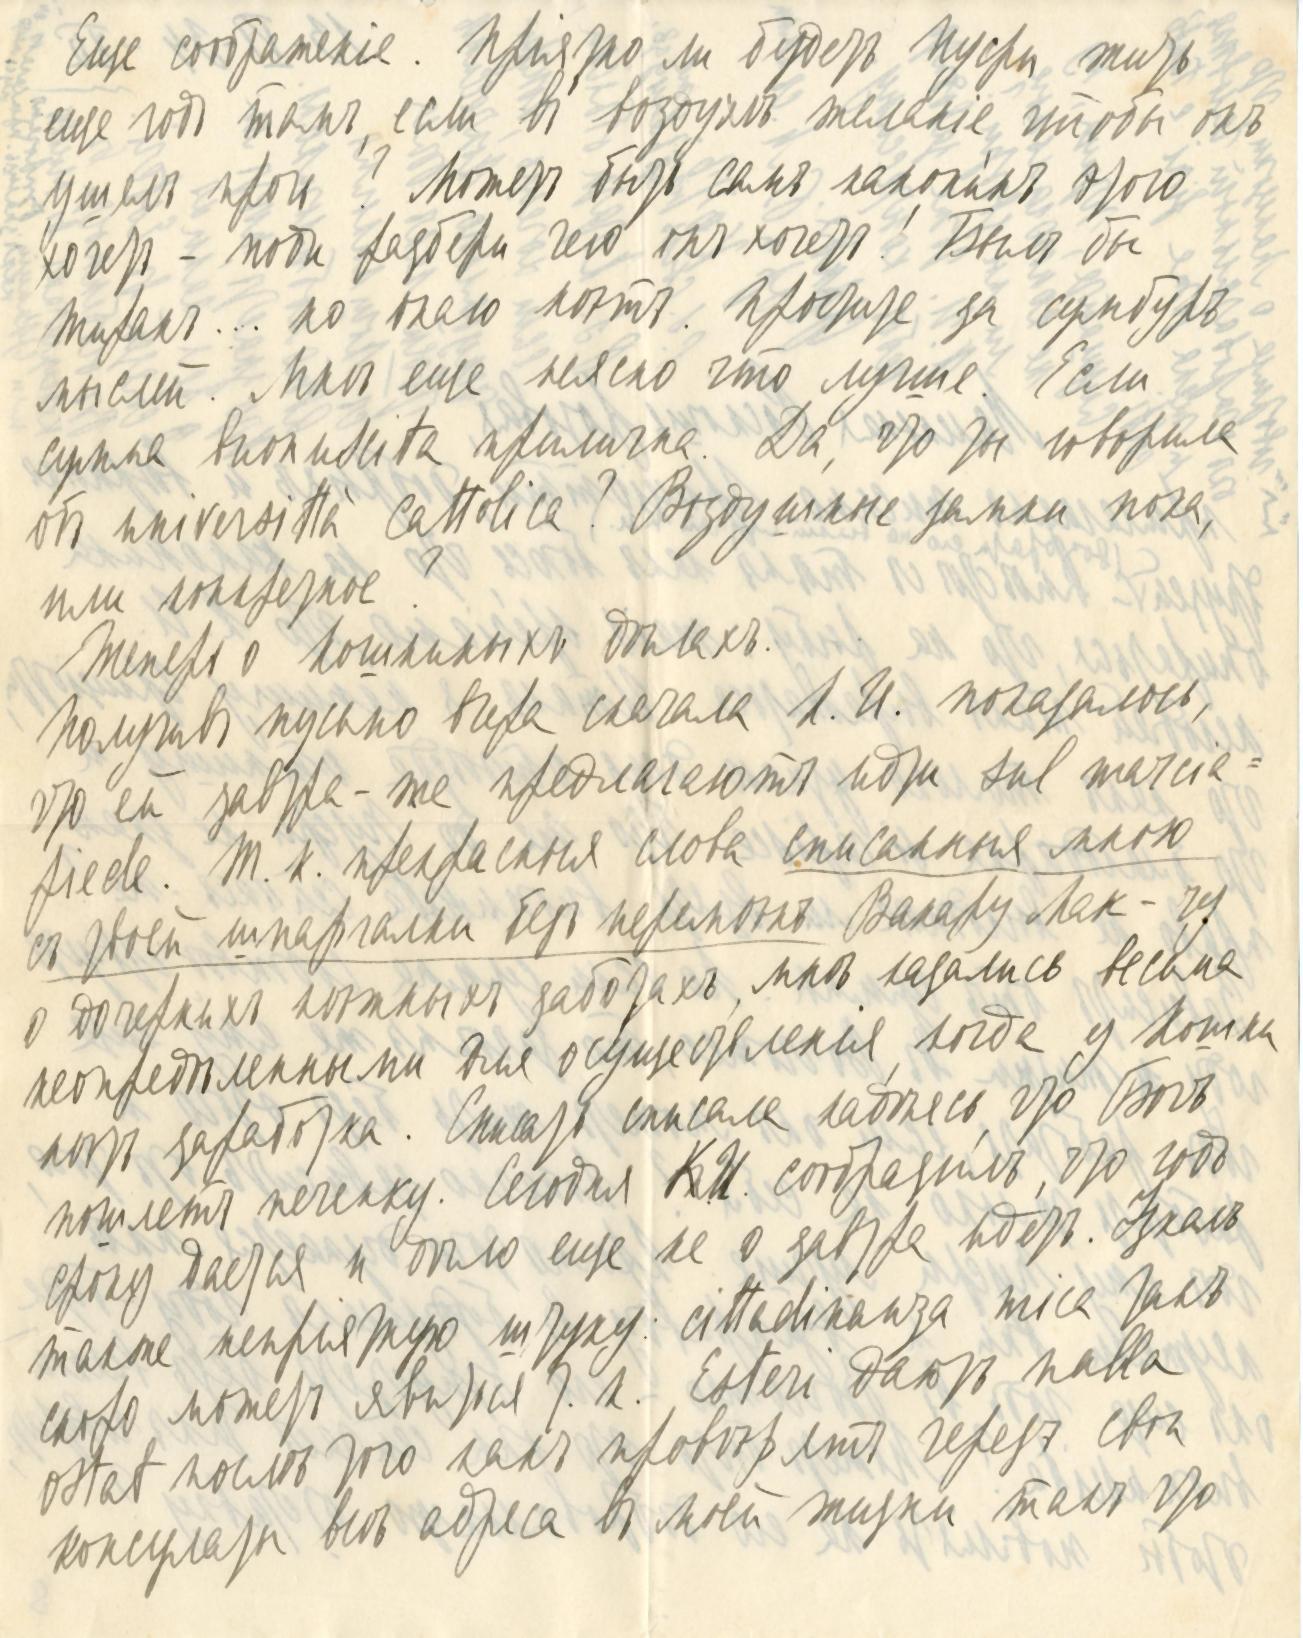 Еще соображенiе. Прiятно ли будетъ Пусти жить
еще годъ тамъ, если въ воздухѣ желанiе чтобы онъ
ушелъ прочь? Можетъ быть самъ наконецъ этого
хочетъ – поди разбери чего онъ хочетъ! Былъ бы
тиранъ... но онаго нѣтъ. Простите за сумбуръ
мыслей. Мнѣ еще неясно что лучше. Если
сумма buonuscita прилична. Да, что ты говорила
объ università Cattolica? Воздушные замки пока,
или конкретное?
Теперь о Кошкиныхъ дѣлахъ.
Получивъ письмо вчера сначала К. И. показалось,
что ей завтра-же предлагаютъ идти sul marcia=
piede. Т. к. прекрасныя слова списанныя мною
съ твоей шпаргалки безъ перемѣнъ Вакару Мак-чу
о дочернихъ нѣжныхъ заботахъ, мнѣ казались весьма
неопредѣленными для осуществленiя, когда у Кошки
нѣтъ заработка. Списать списала надѣясь, что Богъ
пошлетъ печенку. Сегодня К.И. сообразилъ, что годъ
сроку дается и дѣло еще не о завтра идетъ. Узналъ
также непрiятную штуку: cittadinanza mica такъ
скоро можетъ явиться т. к. Esteri даютъ nulla
ostat послѣ того какъ провѣрятъ черезъ свои
консулаты всѣ адреса въ моей жизни такъ что